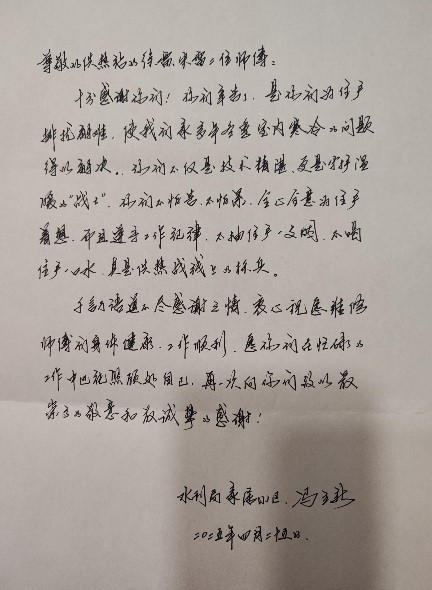 尊敬的供热站的徐雷、宋雷二位师傅:
十分感谢你们！你们辛苦了，是你们为住户
排忧解难，使我们家多年冬季室内寒冷的问题
得以解决。你们不仅是技术精湛，更是守护温
暖的“战士”，你们不怕苦、不怕累，全心全意为住户
着想，而且遵守工作纪律，不抽住户一支烟，不喝
住户一口水，真是供热战线上的标兵。
千言万语道不尽感谢之情，衷心祝愿维修
师傅们身体健康，工作顺利，愿你们在忙碌的
工作中也能照顾好自己，再一次向你们致以最
崇高的敬意和最诚挚的感谢！
水利局家属小区，冯
二〇二五年四月二十五日